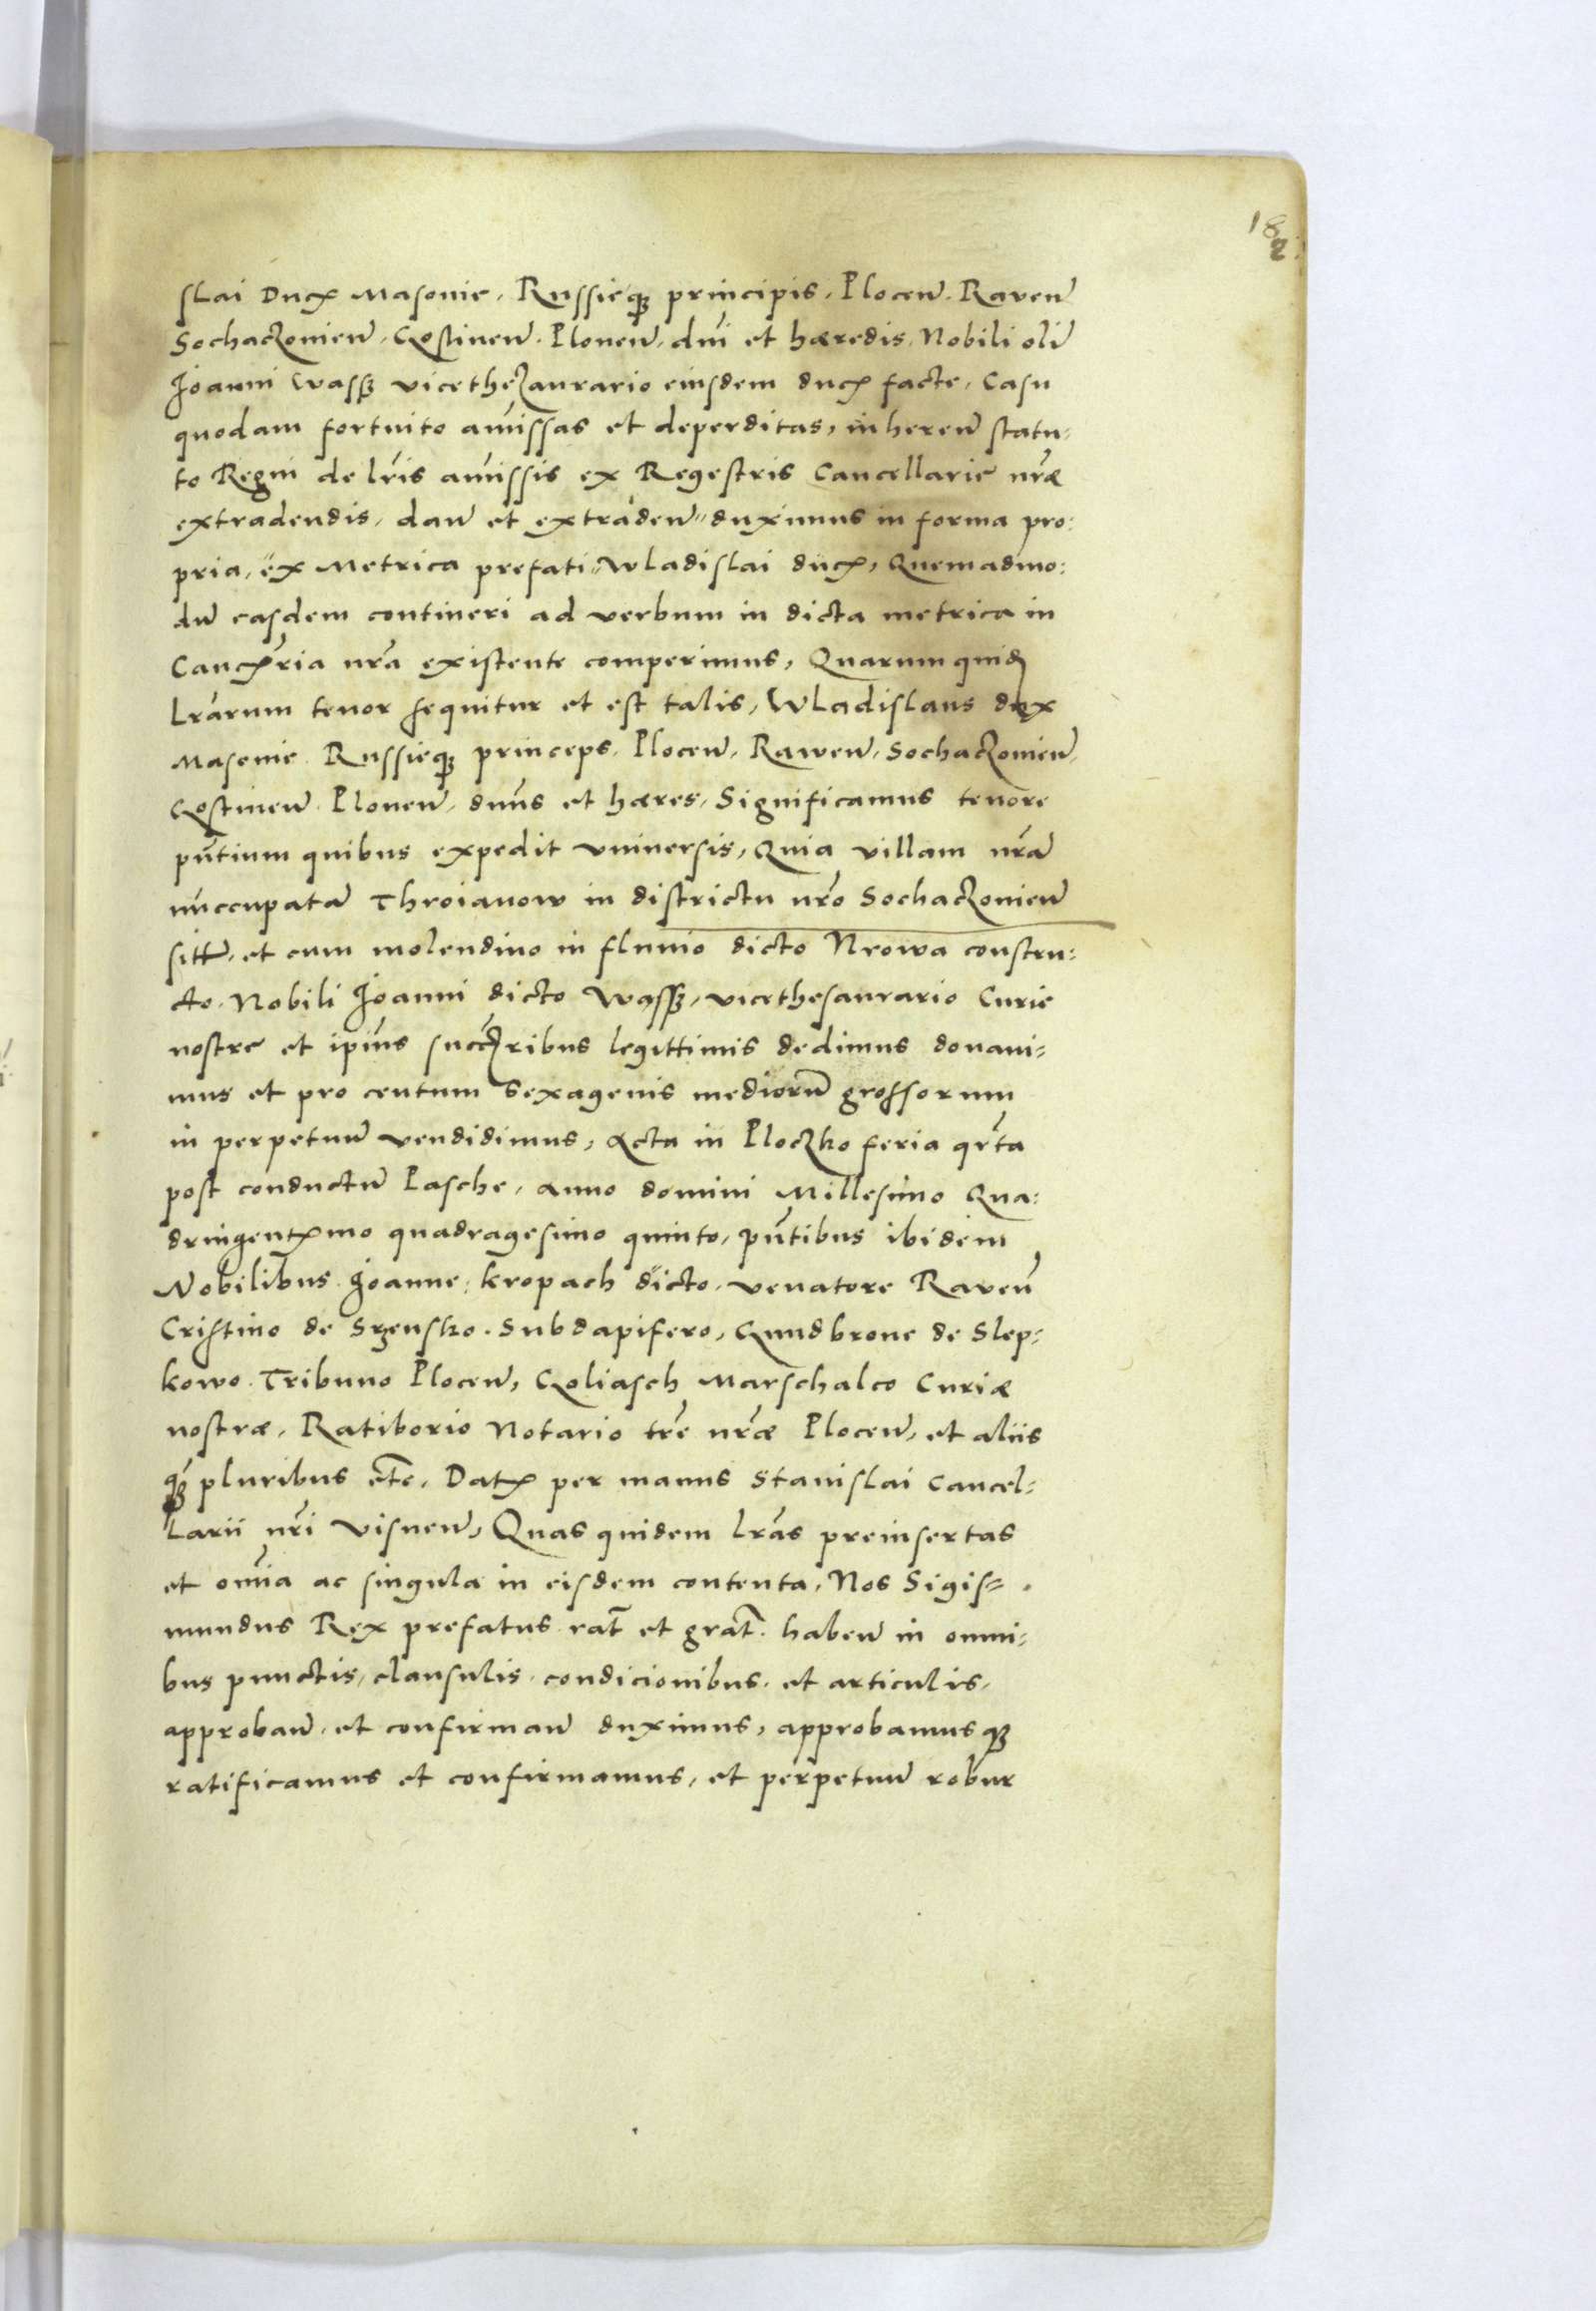 182
slai Ducꝭ Masovie, Russieqꝫ principis, Plocen̄. Raven̄
Sochaczovien̄, Gostinen̄. Plonen̄, dn̄i et hæredis, Nobili oli̅
Joanni Wassꝫ vicethezaurario eiusdem ducꝭ facte, Casu
quodam fortuito amissas et deperditas, inheren̄ statu:
to Regni de lr̄is amissis ex Regestris Cancellarie nr̄æ
extradendis, dan̄ et extraden̄ duximus in forma pro:
pria, ex Metrica prefati Wladislai ducꝭ, Quemadmo:
du̅ easdem contineri ad verbum in dicta metrica in
Cancꝭria nr̄a existente comperimus, Quarum quid
Lr̄arum tenor sequitur et est talis, Wladislaus dux
Masovie Russieqꝫ princeps, Plocen̄, Rawen̄, Sochaczovien̄,
Gostinen̄ Plonen̄, dn̄us et hæres, Significamus tenore
pn̄tium quibus expedit universis, Quia villam nr̄a̅
nuncupata̅ Throianow in districtu nr̄o Sochaczovien̄
sitt̄, et cum molendino in fluvio dicto Nrowa constru:
cto, Nobili Joanni dicto Wassꝫ, vicethesaurario Curie
nostre et ip̄ius succꝭribus legittimis dedimus donavi:
mus et pro centum sexagenis medioru̅ grossorum
in perpetuu̅ vendidimus, Acta in Ploczko feria qr̄ta
post conductu̅ Pasche, Anno domini Millesimo Qua:
dringentꝭmo quadragesimo quinto, pn̄tibus ibidem
Nobilibus Joanne: kropach dicto, venatore Raven̄
Cristino de Srzensko. Subdapifero, Gundbrone de Slep:
kowo Tribuno Plocen̄, Goliasch Marschalco Curiæ
nostræ, Ratiborio Notario tr̄e nr̄æ Plocen̄, et aliis
qꝫ pluribus etc̄, Datꝭ per manus Stanislai Cancel:
larii nr̄i Visnen̄, Quas quidem lr̄as preinsertas
et om̄ia ac singula in eisdem contenta, Nos Sigis=
mundus Rex prefatus rat̄ et grat̄. haben̄ in omni:
bus punctis, clausulis, condicionibus, et articulis,
approban̄, et confirman̄ duximus, approbamusqꝫ
ratificamus et confirmamus, et perpetuu̅ robur